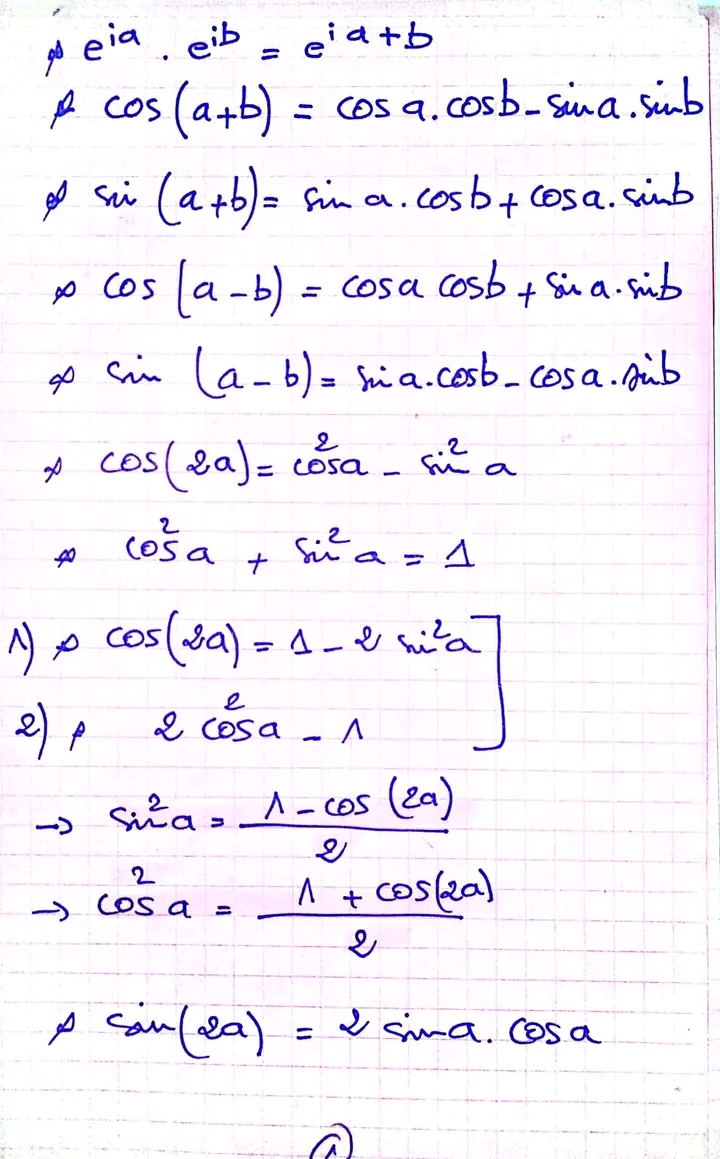 e^{ia} . e^{ib} = e^{ia+b}
cos (a+b) = cos a . cos b - sin a . sin b
sin (a+b) = sin a . cos b + cos a . sin b
cos (a-b) = cos a cos b + sin a . sin b
sin (a-b) = sin a . cos b - cos a . sin b
cos(2a) = cos² a - sin² a
cos² a + sin² a = 1
1) cos(2a) = 1 - 2 sin² a
2) 2 cos² a - 1
→ sin² a = \frac{1 - cos (2a)}{2}
→ cos² a = \frac{1 + cos(2a)}{2}
sin(2a) = 2 sin a . cos a